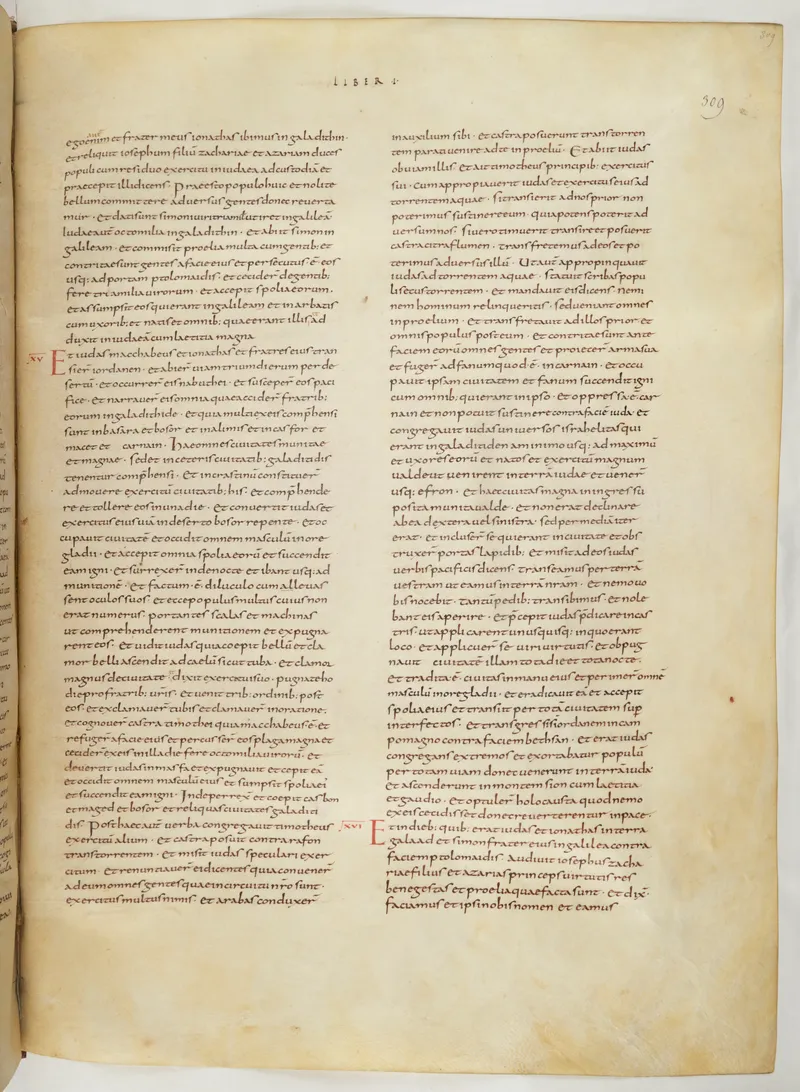 LIBER I
309
309
ego autem et frater meus ionathas ibimus in galadithin ·
et reliquit iosephum filiū zachariae et azariam duces
populi cum residuo exercitu in iudaea ad custodiā et
praecepit illis dicens · Praeesto populo huic et nolite
bellum committere aduersus gentes donec reuerta
mur · et dati sunt simoni uiri tria milia ut iret in galileā
Iudae autē octo milia in galadithin · et abiit simon in
galileam · et commisit proelia multa cum gentib: et
contritae sunt gentes a facie eius et persecutus · ē · eos
usq: ad portam ptolomaidis · et cecider̄ de gentib:
fere tria milia uirorum · et accepit spolia eorum ·
et assumpsit eos qui erant in galileam et in arbatis
cum uxorib: et natis et omnib: quae erant illis · & ad
duxit in iudaeā cum laetitia magna
XV Et iudas macchabeus et ionathas et fratres eius tran
sier̄ iordanen · et abier̄ uiam trium dierum per de
sertū · et occurrer̄ eis nabuthei · et susceper̄ eos paci
fice · et narrauer̄ eis omnia quae accider̄ fratrib:
eorum in galadithide · et quia multi ex eis comphensi
sunt in basara et bosor et in alimis et in casfor et
macet et carnain · Hae omnes ciuitates munitae
et magnae · sed et in ceteris ciuitatib: galaditidis
tenentur comphensi · Et in crastinū constituer̄
admouere exercitū ciuitatib: his · et comphende
re et tollere eos in una die · et conuertit iudas et
exercitus eius uia in deserto bosor repente · et oc
cupauit ciuitatē et occidit omnem masculū in ore
gladii · et accepit omnia spolia eorū et succendit
eam igni · et surrexer̄ inde nocte et ibant usq: ad
munitionē · et factum · ē · diluculo cum alleuas
sent oculos suos · et ecce populus multus cuius non
erat numerus · portantes scalas et machinas
ut comprehenderent munitionem et expugna
rent eos · et uidit iudas quia coepit bellū et cla
mor belli ascendit ad caelū sicut tuba · et clamor
magnus de ciuitate · dixit exercitui suo · pugnate ho
die pro fratrib: uris · et uenit trib: ordinib: post
eos · et exclamauer̄ tubis et clamauer̄ in oratione ·
et cognouer̄ castra timothei quia macchabeus · ē · et
refuger̄ a facie eius et percusser̄ eos plaga magna et
cecider̄ ex eis in illa die fere octo milia uirorū · et
deuertit iudas in masfa et expugnauit et cepit eā
et occidit omnem masculū eius et sumpsit spolia ei
et succendit eam igni · Inde perrex̄ et coepit casbon
et maged et bosor et reliquas ciuitates galaditi
dis · Post haec autē uerba congregauit timotheus
exercitū alium · et castra posuit contra rafon
trans torrentem · et misit iudas speculari exer
citum · et renuntiauer̄ ei dicentes quia conuener̄
ad eum omnes gentes quae in circuitu nr̄o sunt ·
exercitus multus nimis · et arabas conduxer̄
in auxilium sibi · et castra posuerunt trans torren
tem parati uenire ad te in proeliū · Et abiit iudas
obuiam illis · et ait timotheus principib: exercitus
sui · Cum appropiauerit iudas et exercitus eius ad
torrentem aquae · si transierit ad nos prior non
poterimus sustinere eum · quia potens poterit ad
uersum nos · si uero timuerit transire et posuerit
castra citra flumen · transfretemus ad eos et po
terimus aduersus illū · Ut autē appropinquauit
iudas ad torrentem aquae · statuit scribas popu
li secus torrentem · et mandauit eis dicens · nemi
nem hominum relinqueritis · sed ueniant omnes
in proelium · et transfretauit ad illos prior et
omnis populus post eum · et contritae sunt ante
faciem eorū omnes gentes et proiecer̄ arma sua
et fuger̄ ad fanum quod ē · in carnain · et occu
pauit ipsam ciuitatem et fanum succendit igni
cum omnib: qui erant in ipso · et oppressa · ē · car
nain et non potuit sustinere contra faciē iuda · et
congregauit iudas uniuersos israhelitas qui
erant in galaditiden a minimo usq: ad maximū
et uxores eorū et natos et exercitū magnum
ualde ut uenirent in terrā iudae et uener̄
usq: efron · et haec ciuitas magna in ingressū
posita munita ualde · et non erat declinare
ab ea dextera uel sinistra · sed per mediā iter
erat · et incluser̄ se qui erant in ciuitate et obs
truxer̄ portas lapidib: et misit ad eos iudas
uerbis pacificis dicens · transeamus per terrā
uestram ut eamus in terrā nr̄am · et nemo uo
bis nocebit · tantū pedib: transibimus · et nole
bant eis aperire · et pcepit iudas pdicare in cas
tris · ut applicarent unusquisq: in quo erant
loco · et applicuer̄ se uiri uirtutis · et obpug
nauit ciuitatē illam tota die et tota nocte ·
et tradita · ē · ciuitas in manu eius et perimer̄ omnē
masculū in ore gladii · et eradicauit eā et accepit
spolia eius et transiit per totā ciuitatem sup
interfectos · et transgressi s̄ iordanem in cam
po magno contra faciem bethsan · et erat iudas
congregans extremos et exortabatur populū
per totam uiam donec uenerunt in terrā iuda
et ascenderunt in montem sion cum laetitia
et gaudio · et optuler̄ holocausta quod nemo
ex eis cecidisset donec reuerterentur in pace ·
XVI Et in dieb: quib: erat iudas et ionathas in terra
galaad et simon frater eius in galilea contra
faciem ptolomaidis · Audiuit iosephus zacha
riae filius et azarias princeps uirtutis res
bene gestas et proelia quae facta sunt · et dix̄ ·
faciamus et ipsi nobis nomen et eamus